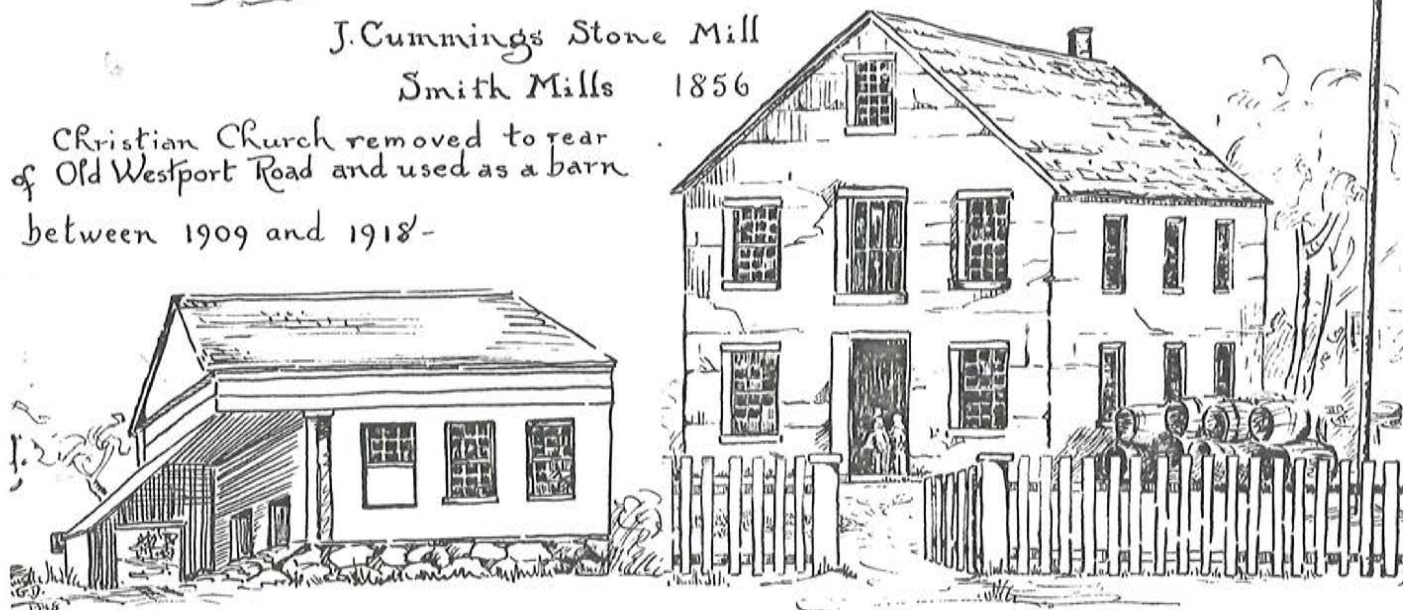 J. Cummings Stone Mill
Smith Mills 1856
Christian Church removed to rear
of Old Westport Road and used as a barn
between 1909 and 1918-